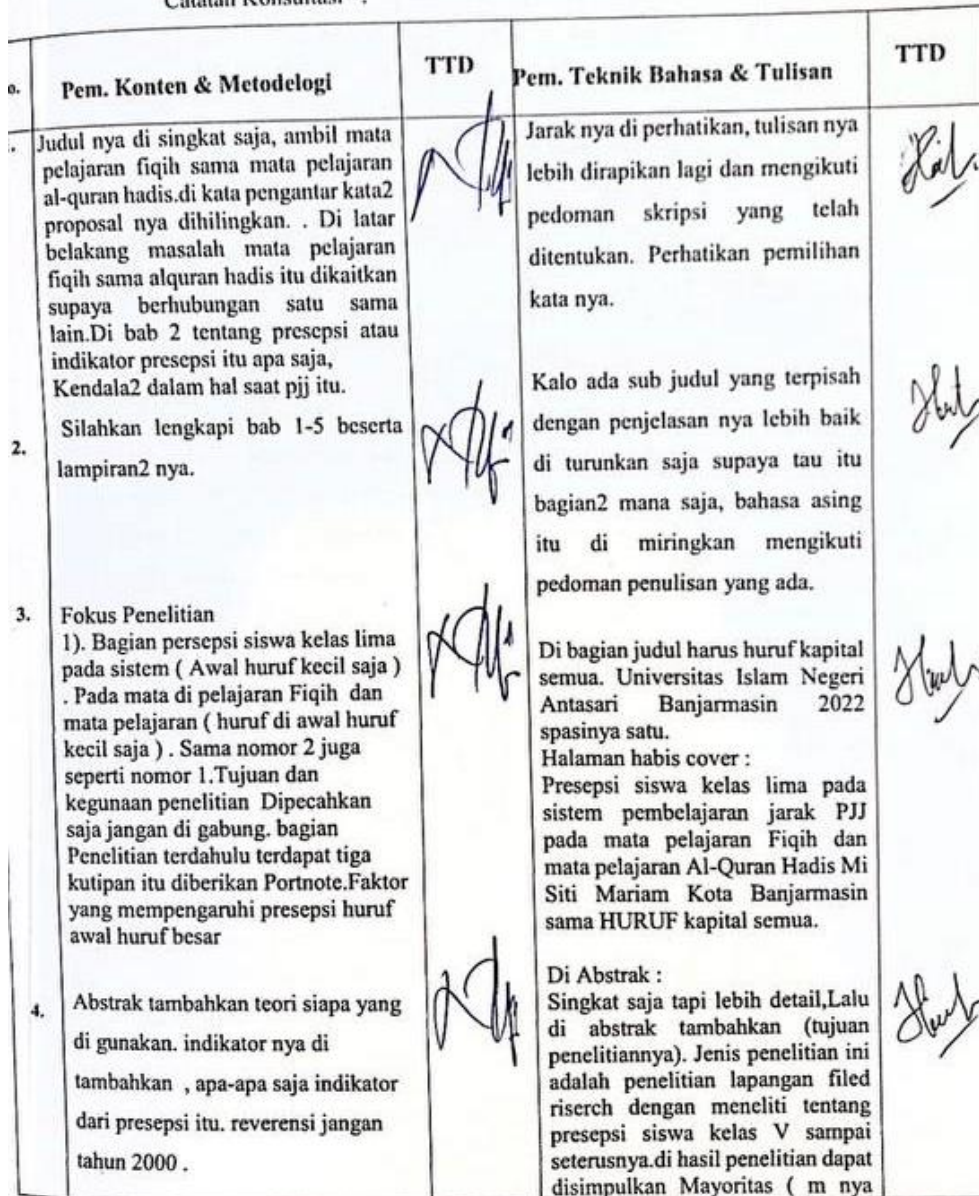 Catatan Konsultasi :
o.
Pem. Konten & Metodelogi
TTD
Pem. Teknik Bahasa & Tulisan
TTD
Judul nya di singkat saja, ambil mata
pelajaran fiqih sama mata pelajaran
al-quran hadis.di kata pengantar kata2
proposal nya dihilingkan. . Di latar
belakang masalah mata pelajaran
fiqih sama alquran hadis itu dikaitkan
supaya berhubungan satu sama
lain.Di bab 2 tentang presepsi atau
indikator presepsi itu apa saja,
Kendala2 dalam hal saat pjj itu.
Jarak nya di perhatikan, tulisan nya
lebih dirapikan lagi dan mengikuti
pedoman skripsi yang telah
ditentukan. Perhatikan pemilihan
kata nya.
2.
Silahkan lengkapi bab 1-5 beserta
lampiran2 nya.
Kalo ada sub judul yang terpisah
dengan penjelasan nya lebih baik
di turunkan saja supaya tau itu
bagian2 mana saja, bahasa asing
itu di miringkan mengikuti
pedoman penulisan yang ada.
3.
Fokus Penelitian
1). Bagian persepsi siswa kelas lima
pada sistem ( Awal huruf kecil saja )
. Pada mata di pelajaran Fiqih dan
mata pelajaran ( huruf di awal huruf
kecil saja ) . Sama nomor 2 juga
seperti nomor 1.Tujuan dan
kegunaan penelitian Dipecahkan
saja jangan di gabung. bagian
Penelitian terdahulu terdapat tiga
kutipan itu diberikan Portnote.Faktor
yang mempengaruhi presepsi huruf
awal huruf besar
Di bagian judul harus huruf kapital
semua. Universitas Islam Negeri
Antasari Banjarmasin 2022
spasinya satu.
Halaman habis cover :
Presepsi siswa kelas lima pada
sistem pembelajaran jarak PJJ
pada mata pelajaran Fiqih dan
mata pelajaran Al-Quran Hadis Mi
Siti Mariam Kota Banjarmasin
sama HURUF kapital semua.
4.
Abstrak tambahkan teori siapa yang
di gunakan. indikator nya di
tambahkan , apa-apa saja indikator
dari presepsi itu. reverensi jangan
tahun 2000 .
Di Abstrak :
Singkat saja tapi lebih detail,Lalu
di abstrak tambahkan (tujuan
penelitiannya). Jenis penelitian ini
adalah penelitian lapangan filed
riserch dengan meneliti tentang
presepsi siswa kelas V sampai
seterusnya.di hasil penelitian dapat
disimpulkan Mayoritas ( m nya